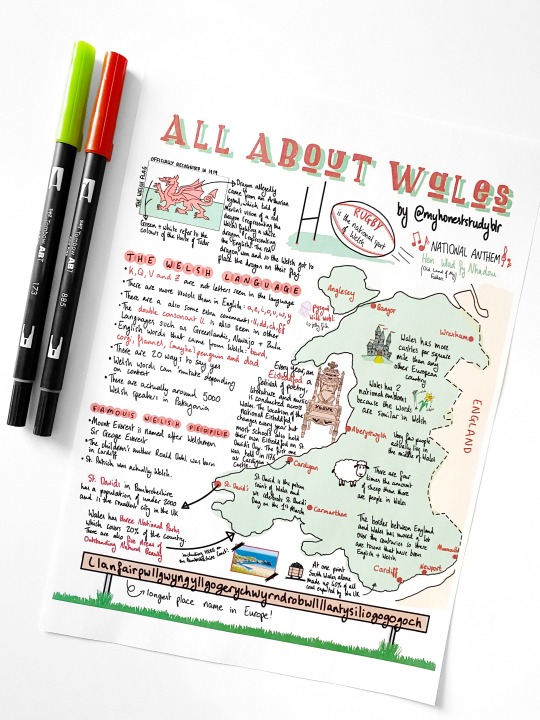 ALL ABOUT WALES
by @myhonestudyblr
OFFICIALLY RECOGNISED IN 1959
THE WELSH FLAG
Dragon allegedly
came from an Arthurian
legend, which told of
Merlin's vision of a red
dragon (representing the
Welsh) fighting a white
dragon (representing
the 'English'). The red
dragon won and so the Welsh got to
place the dragon on their flag
Green + White refer to the
colours of the House of Tudor
RUGBY
is the national sport
of Welsh
NATIONAL ANTHEM
Hen Wlad Fy Nhadau
(Old Land of My
Fathers)
THE WELSH LANGUAGE
• K, Q, V and Z are not letters seen in the language
• There are more vowels than in English: a, e, i, o, u, w, y
• There are also some extra consonants: ll, dd, ch, ff
• The double consonant LL is also seen in other
languages such as Greenlandic, Navajo + Zulu
• English words that came from Welsh: bard,
corgi, flannel, (maybe) penguin and dad
• There are 20 ways to say yes
• Welsh words can mutate depending
on context
• There are actually around 5000
Welsh speakers in Patagonia
FAMOUS WELSH PEOPLE
• Mount Everest is named after Welshman
Sir George Everest
• The children's author Roald Dahl was born
in Cardiff
• St. Patrick was actually Welsh.
St. Davids in Pembrokeshire
has a population of under 2000
and is the smallest city in the UK
Wales has three National Parks
which covers 20% of the country.
There are also five Areas of
Outstanding Natural Beauty
including HERE on
the Pembrokeshire coast!
Every year, an
Eisteddfod
festival of poetry,
literature and music
is conducted across
Wales. The location of the
national Eisteddfod
changes every year but
most schools also hold
their own Eisteddfod on St
Davids Day. The first one
was held in 1176 at
Cardigan castle
Anglesey
Bangor
Wrexham
Wales has more
castles per square
mile than any
other European
country
Wales has 2
national emblems
because the words
are similar in Welsh
ENGLAND
Aberystwyth
Very few people
actually live in the
middle of Wales
Cardigan
There are four
times the amount
of sheep than there
are people in Wales
St. Davids
St David is the patron
saint of Wales and
we celebrate St Davids
Day on the 1st March
Carmarthen
The border between England
and Wales has moved a lot
over the centuries so there
are towns that have been
English + Welsh
Newport
Cardiff
At one point
South Wales alone
made up 40% of all
coal exported by the UK
Llanfairpwllgwyngyllgogerychwyrndrobwllllantysiliogogogoch
longest place name in Europe!
173
885